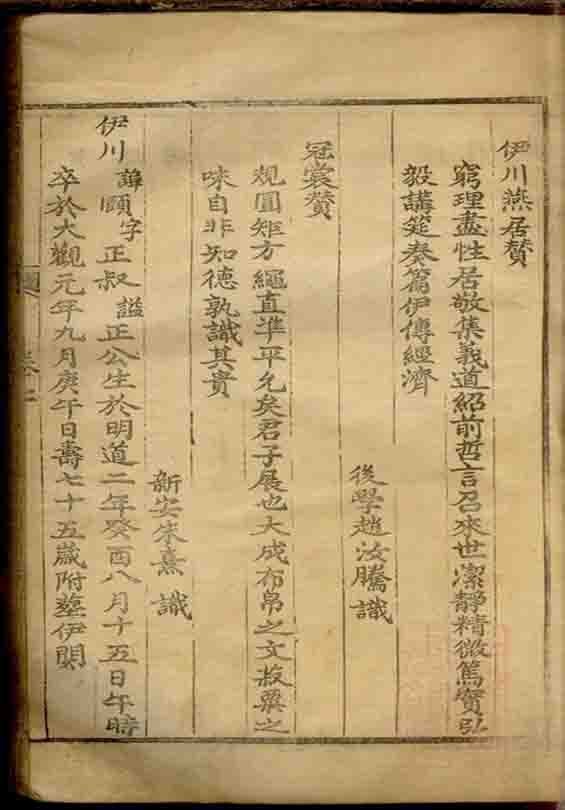 伊川燕居贊
窮理盡性居敬集義道紹前哲言召來世潔靜精微篤實弘
毅講筵奏篇伊傳經濟
後學趙汝騰識
冠裳贊
規圓矩方繩直準平允矣君子展也大成布帛之文菽粟之
味自非知德孰識其貴
新安朱熹識
伊川諱頤字正叔謚正公生於明道二年癸酉八月十五日午時
卒於大觀元年九月庚午日壽七十五歲附塟伊闕